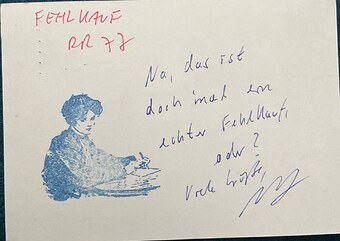 FEHLKAUF
RR 77
Na, das ist
doch mal ein
echter Fehlkauf,
oder?
Viele Grüße,